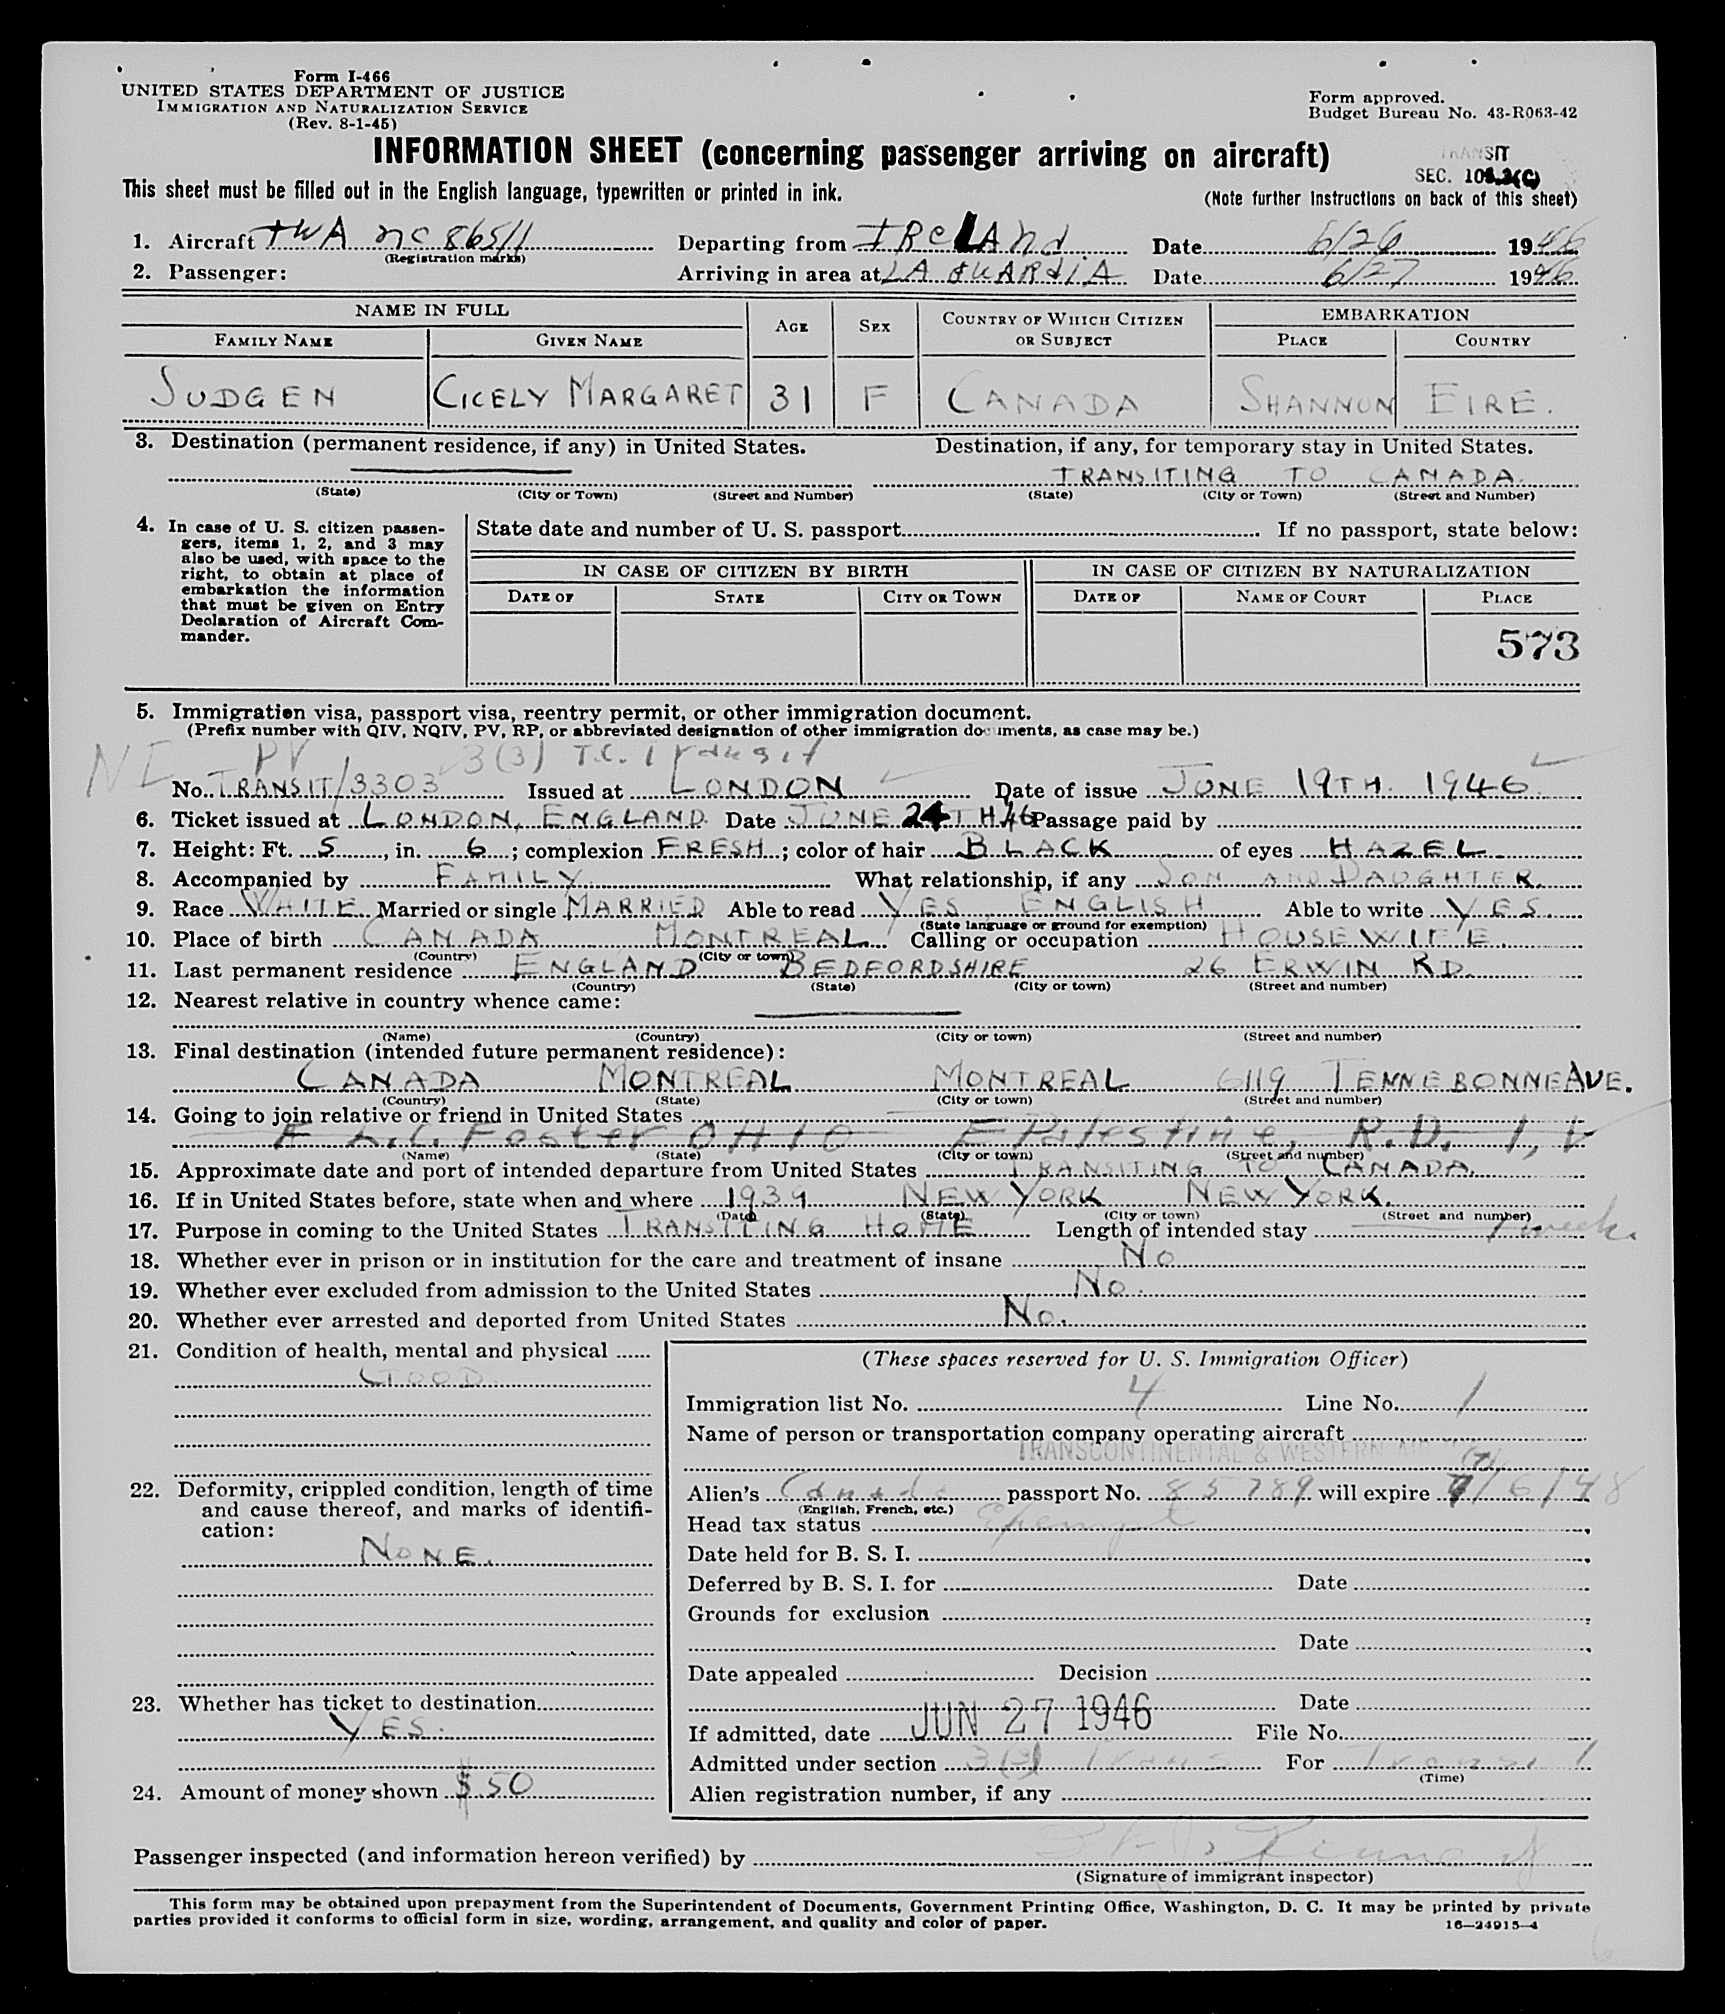 Form I-466
UNITED STATES DEPARTMENT OF JUSTICE
IMMIGRATION AND NATURALIZATION SERVICE
(Rev. 8-1-45)
Form approved.
Budget Bureau No. 43-R063-42
INFORMATION SHEET (concerning passenger arriving on aircraft)
TRANSIT
SEC. 103.3(C)
This sheet must be filled out in the English language, typewritten or printed in ink.
(Note further instructions on back of this sheet)
1. Aircraft TWA NC 86511 Departing from IRELAND Date 6/26 1946
(Registration marks)
2. Passenger: Arriving in area at LA GUARDIA Date 6/27 1946
NAME IN FULL AGE SEX COUNTRY OF WHICH CITIZEN OR SUBJECT EMBARKATION
FAMILY NAME GIVEN NAME PLACE COUNTRY
SUDGEN CICELY MARGARET 31 F CANADA SHANNON EIRE.
3. Destination (permanent residence, if any) in United States. Destination, if any, for temporary stay in United States.
TRANSITING TO CANADA.
(State) (City or Town) (Street and Number) (State) (City or Town) (Street and Number)
4. In case of U. S. citizen passen-
gers, items 1, 2, and 3 may
also be used, with space to the
right, to obtain at place of
embarkation the information
that must be given on Entry
Declaration of Aircraft Com-
mander.
State date and number of U. S. passport If no passport, state below:
IN CASE OF CITIZEN BY BIRTH IN CASE OF CITIZEN BY NATURALIZATION
DATE OF STATE CITY OR TOWN DATE OF NAME OF COURT PLACE
573
5. Immigration visa, passport visa, reentry permit, or other immigration document.
(Prefix number with QIV, NQIV, PV, RP, or abbreviated designation of other immigration documents, as case may be.)
NI PV 3(3) T.C. Transit
No. TRANSIT/3303 Issued at LONDON Date of issue JUNE 19TH. 1946
6. Ticket issued at LONDON, ENGLAND. Date JUNE 24TH/46 Passage paid by
7. Height: Ft. 5, in. 6; complexion FRESH; color of hair BLACK of eyes HAZEL
8. Accompanied by FAMILY What relationship, if any SON AND DAUGHTER.
9. Race WHITE Married or single MARRIED Able to read YES, ENGLISH Able to write YES.
(State language or ground for exemption)
10. Place of birth CANADA MONTREAL Calling or occupation HOUSEWIFE.
(Country) (City or town)
11. Last permanent residence ENGLAND BEDFORDSHIRE 26 ERWIN RD.
(Country) (State) (City or town) (Street and number)
12. Nearest relative in country whence came:
(Name) (Country) (City or town) (Street and number)
13. Final destination (intended future permanent residence):
CANADA MONTREAL MONTREAL 6119 TENNEBONNE AVE.
(Country) (State) (City or town) (Street and number)
14. Going to join relative or friend in United States
Foster OHIO E Palestine, R.D. 1,
(Name) (State) (City or town) (Street and number)
15. Approximate date and port of intended departure from United States TRANSITING TO CANADA.
16. If in United States before, state when and where 1939 NEW YORK NEW YORK.
(Date) (State) (City or town) (Street and number)
17. Purpose in coming to the United States TRANSITING HOME Length of intended stay 1 week
18. Whether ever in prison or in institution for the care and treatment of insane No
19. Whether ever excluded from admission to the United States No.
20. Whether ever arrested and deported from United States No.
21. Condition of health, mental and physical
GOOD
22. Deformity, crippled condition, length of time
and cause thereof, and marks of identifi-
cation:
NONE.
23. Whether has ticket to destination
YES.
24. Amount of money shown $50
(These spaces reserved for U. S. Immigration Officer)
Immigration list No. 4 Line No. 1
Name of person or transportation company operating aircraft
TRANSCONTINENTAL & WESTERN AIR
Alien's Canada passport No. 85789 will expire 7/6/48
(English, French, etc.)
Head tax status Exempt
Date held for B. S. I.
Deferred by B. S. I. for Date
Grounds for exclusion
Date
Date appealed Decision
Date
If admitted, date JUN 27 1946 File No.
Admitted under section 3(3) Trans For Transit
(Time)
Alien registration number, if any
Passenger inspected (and information hereon verified) by
(Signature of immigrant inspector)
This form may be obtained upon prepayment from the Superintendent of Documents, Government Printing Office, Washington, D. C. It may be printed by private
parties provided it conforms to official form in size, wording, arrangement, and quality and color of paper.
16—24915-4